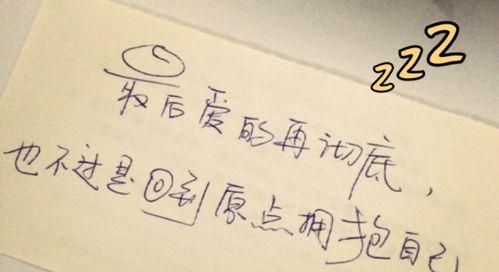 zzz
最后爱的再彻底，
也不过是回到原点拥抱自己